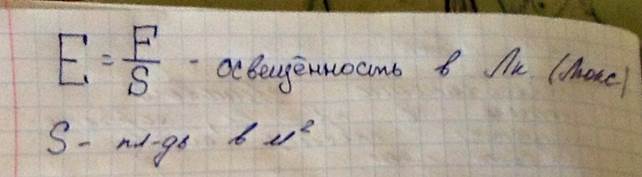 E = F/S - освещённость в Лк (Люкс)
S - пл-дь в м²